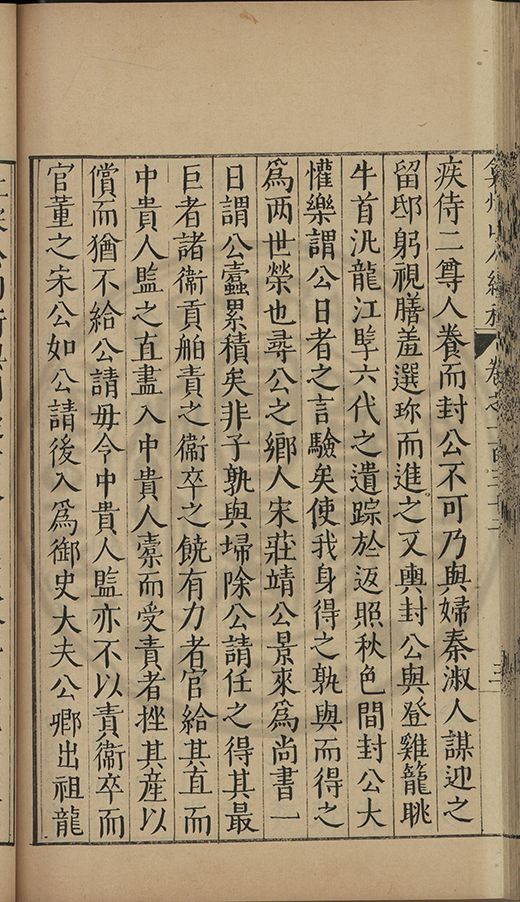 弇州山人續稿 卷之一百三十二 三
疾侍二尊人養而封公不可乃與婦秦淑人謀迎之
留邸躬視膳羞選珎而進之又輿封公與登雞籠眺
牛首汎龍江掔六代之遺踪於返照秋色間封公大
懽樂謂公日者之言驗矣使我身得之孰與而得之
爲两世榮也尋公之鄉人宋莊靖公景來爲尚書一
日謂公蠹累積矣非子孰與埽除公請任之得其最
巨者諸衞貢舶責之衞卒之饒有力者官給其直而
中貴人監之直盡入中貴人橐而受責者挫其産以
償而猶不給公請毋令中貴人監亦不以責衞卒而
官董之宋公如公請後入爲御史大夫公卿出祖龍